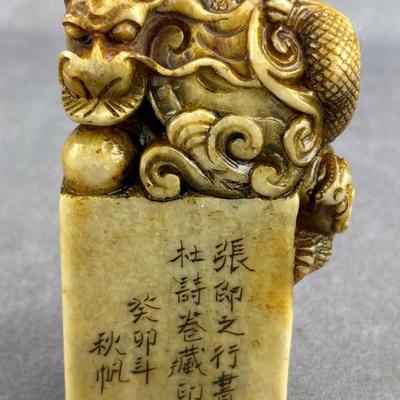 張即之行書
杜詩卷藏印
癸卯斗
秋帆